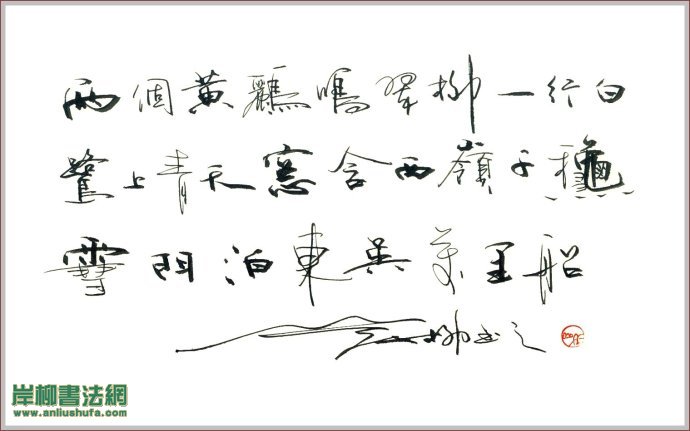 兩個黃鸝鳴翠柳一行白
鷺上青天窓含西嶺千穐
雪門泊東吳萬里船
柳書之
岸柳書法網
www.anliushufa.com